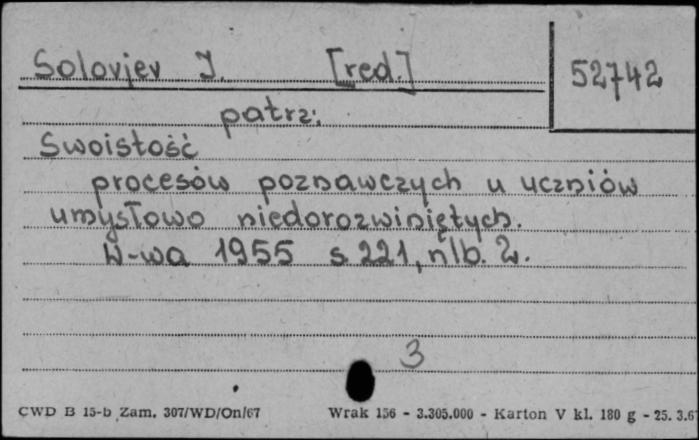 Solovjev I. [red.]
52742
patrz:
Swoistość
procesów poznawczych u uczniów
umysłowo niedorozwiniętych.
W-wa 1955 s. 221, nlb. 2.
3
CWD B 15-b Zam. 307/WD/On/67 Wrak 156 - 3.305.000 - Karton V kl. 180 g - 25. 3.67